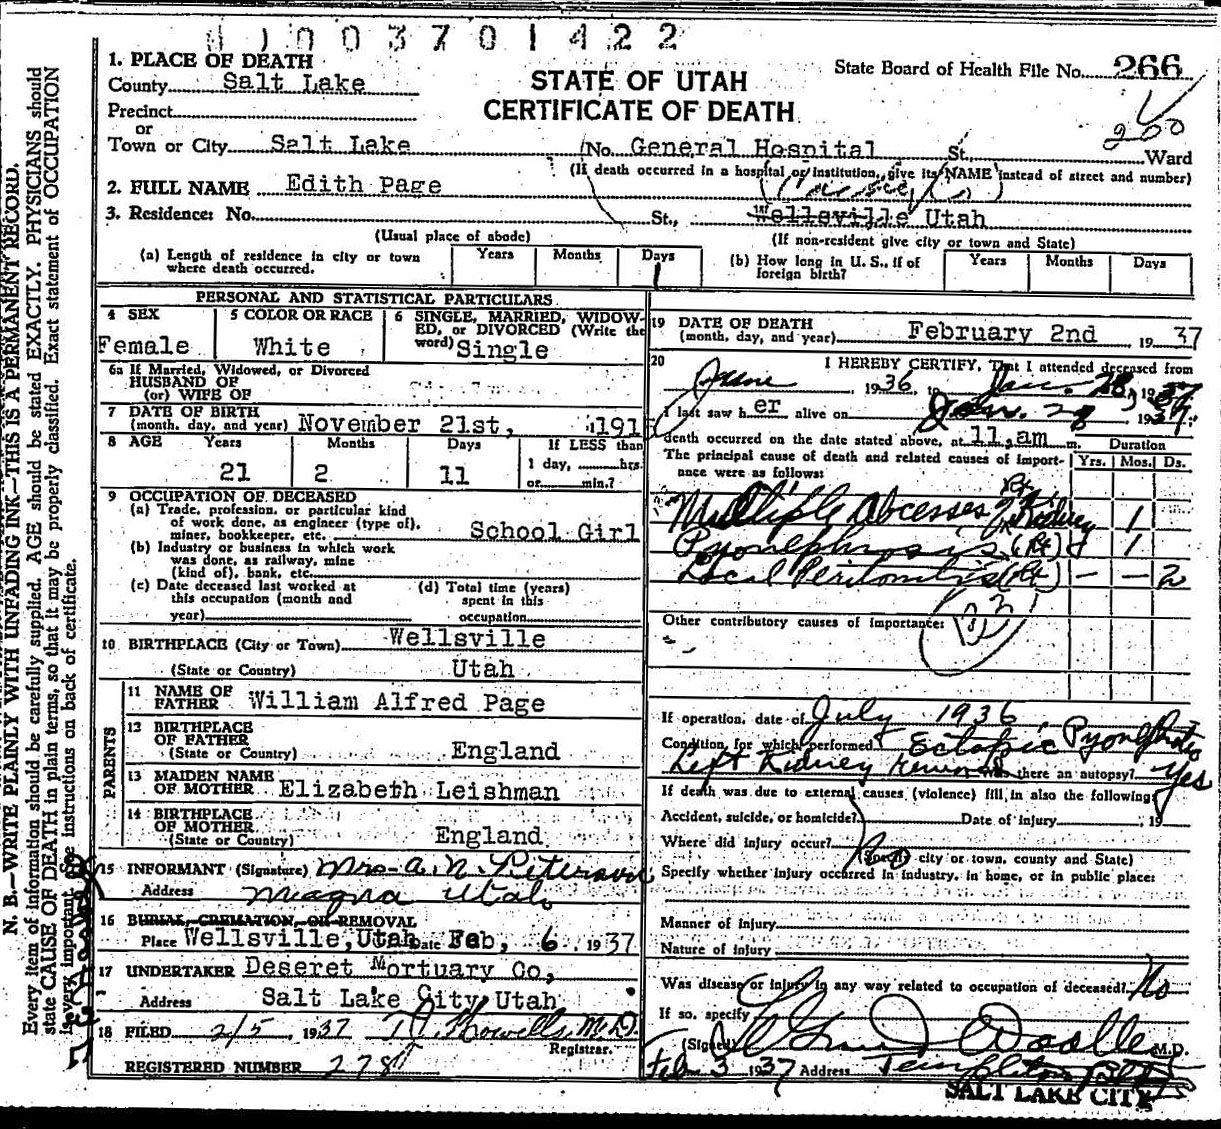 1003701422
1. PLACE OF DEATH
County Salt Lake
STATE OF UTAH
CERTIFICATE OF DEATH
State Board of Health File No. 266
Precinct
or
200
Town or City Salt Lake (No. General Hospital St. Ward
(If death occurred in a hospital or institution, give its NAME instead of street and number)
2. FULL NAME Edith Page
3. Residence: No. St., Wellsville Utah
(Usual place of abode) (If non-resident give city or town and State)
(a) Length of residence in city or town where death occurred. Years Months Days 1
(b) How long in U. S., if of foreign birth? Years Months Days
PERSONAL AND STATISTICAL PARTICULARS
4 SEX Female
5 COLOR OR RACE White
6 SINGLE, MARRIED, WIDOWED, or DIVORCED (Write the word) Single
6a If Married, Widowed, or Divorced
HUSBAND OF
(or) WIFE OF
7 DATE OF BIRTH
(month, day, and year) November 21st, 191
8 AGE Years Months Days If LESS than
21 2 11 1 day, hrs.
or min.?
9 OCCUPATION OF DECEASED
(a) Trade, profession, or particular kind
of work done, as engineer (type of),
miner, bookkeeper, etc. School Girl
(b) Industry or business in which work
was done, as railway, mine
(kind of), bank, etc.
(c) Date deceased last worked at
this occupation (month and
year)
(d) Total time (years)
spent in this
occupation
10 BIRTHPLACE (City or Town) Wellsville
(State or Country) Utah
PARENTS
11 NAME OF
FATHER William Alfred Page
12 BIRTHPLACE
OF FATHER
(State or Country) England
13 MAIDEN NAME
OF MOTHER Elizabeth Leishman
14 BIRTHPLACE
OF MOTHER
(State or Country) England
15 INFORMANT (Signature) Mrs. A. N. Peterson
Address Magna Utah
16 BURIAL, CREMATION, OR REMOVAL
Place Wellsville, Utah Date Feb, 6, 1937
17 UNDERTAKER Deseret Mortuary Co,
Address Salt Lake City, Utah
18 FILED 2/5 1937 Howells M.D.
Registrar.
REGISTERED NUMBER 278
19 DATE OF DEATH
(month, day, and year) February 2nd, 1937
20 I HEREBY CERTIFY, That I attended deceased from
June, 1936, to Jan. 28, 1937
I last saw her alive on Jan. 28 1937;
death occurred on the date stated above, at 11, am m. Duration
The principal cause of death and related causes of importance were as follows: Yrs. Mos. Ds.
Multiple Abcesses Rt. Kidney 1
Pyonephrosis (Rt) 1
Local Peritonitis (Rt) — — 2
Other contributory causes of importance:
If operation, date of July 1936
Condition for which performed Ectopic Pyonephrotic
Left Kidney removed Was there an autopsy? Yes
If death was due to external causes (violence) fill in also the following:
Accident, suicide, or homicide? Date of injury , 19
Where did injury occur? No
(Specify city or town, county and State)
Specify whether injury occurred in industry, in home, or in public place:
Manner of injury
Nature of injury
Was disease or injury in any way related to occupation of deceased? No
If so, specify
(Signed) M.D.
Feb 3 1937 Address Templeton Bldg
SALT LAKE CITY
N. B.—WRITE PLAINLY WITH UNFADING INK—THIS IS A PERMANENT RECORD.
Every item of information should be carefully supplied. AGE should be stated EXACTLY. PHYSICIANS should
state CAUSE OF DEATH in plain terms, so that it may be properly classified. Exact statement of OCCUPATION
is very important. See instructions on back of certificate.